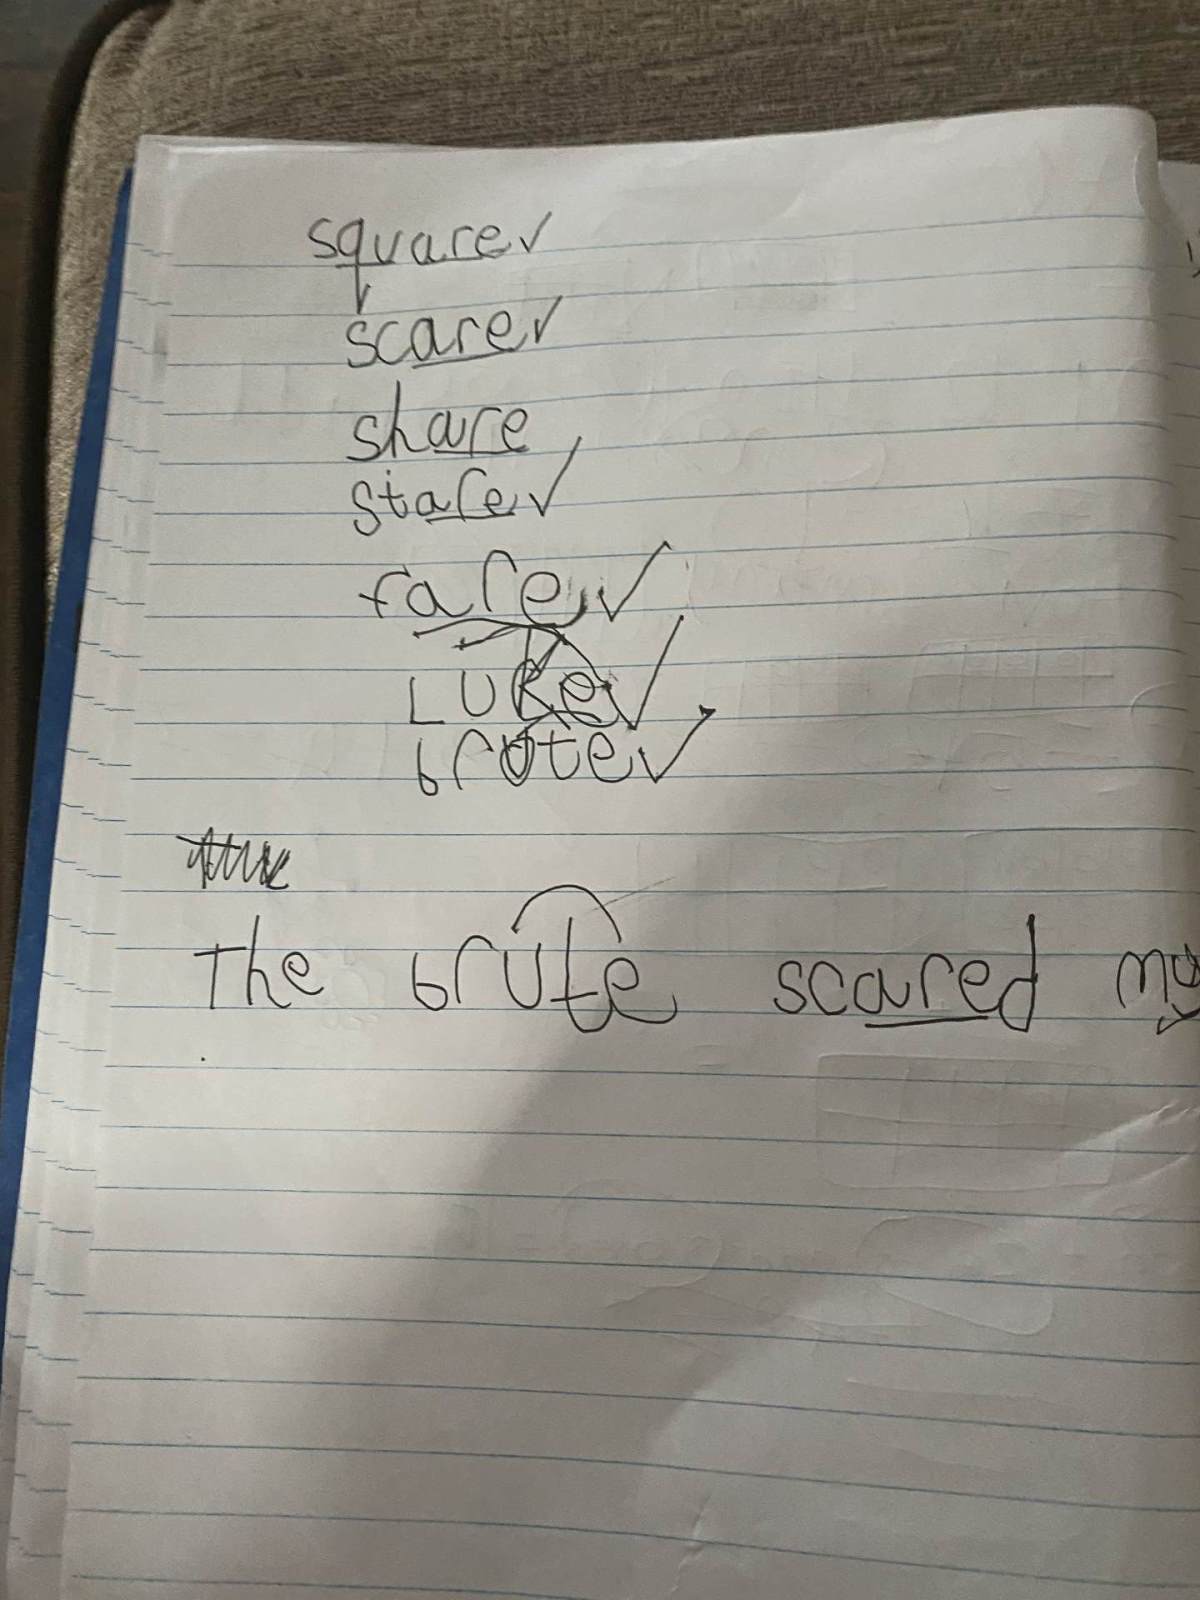 square✓
scare✓
share
stare✓
fare✓
Luke✓
brute✓
The brute scared my